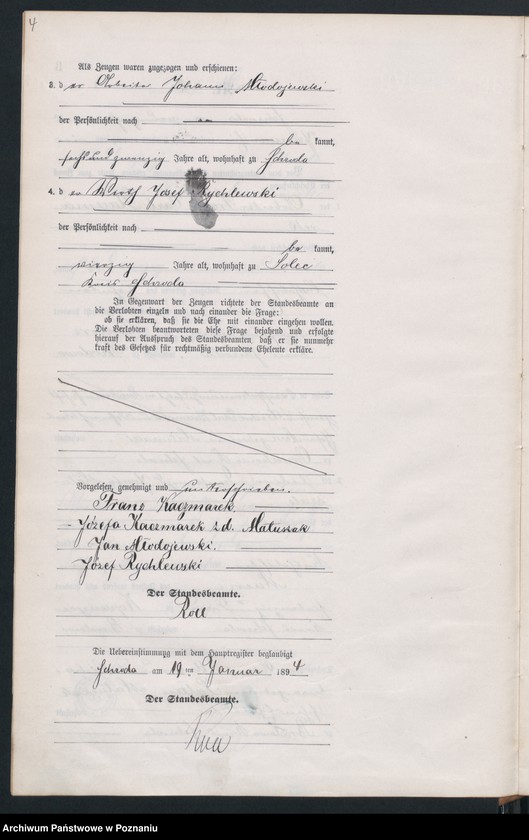 4
Als Zeugen waren zugezogen und erschienen:
3. der Arbeiter Johann Młodojewski
der Persönlichkeit nach
be kannt,
sechsundzwanzig Jahre alt, wohnhaft zu Schroda
4. der Wirth Josef Rychlewski
der Persönlichkeit nach
be kannt,
vierzig Jahre alt, wohnhaft zu Solec
Kreis Schroda
In Gegenwart der Zeugen richtete der Standesbeamte an
die Verlobten einzeln und nach einander die Frage:
ob sie erklären, daß sie die Ehe mit einander eingehen wollen.
Die Verlobten beantworteten diese Frage bejahend und erfolgte
hierauf der Ausspruch des Standesbeamten, daß er sie nunmehr
kraft des Gesetzes für rechtmäßig verbundene Eheleute erkläre.
Vorgelesen, genehmigt und unterschrieben.
Franz Kaczmarek
Józefa Kaczmarek z d. Matuszak
Jan Młodojewski.
Józef Rychlewski
Der Standesbeamte.
Roll
Die Uebereinstimmung mit dem Hauptregister beglaubigt
Schroda am 19 ten Januar 1894
Der Standesbeamte.
Archiwum Państwowe w Poznaniu